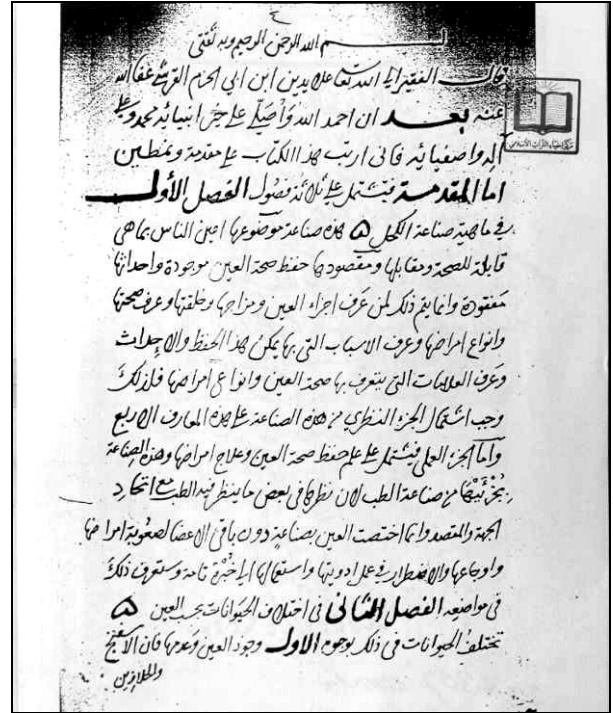 بسم الله الرحمن الرحيم وبه ثقتي
قال الفقير الى الله تعالى علا يدين ابن ابي الحزم القرشي عفا الله
عنه بعد ان احمد الله واصلي على خير انبيائه محمد وعلى
آله واصفيائه فاني ارتب هذا الكتاب على مقدمة ونمطين
اما المقدمة فتشتمل على ثلاثة فصول الفصل الأول
في ماهية صناعة الكحل هذه صناعة موضوعها اعين الناس بما هي
قابلة للصحة ومقابلها ومقصودها حفظ صحة العين موجودة واحداثها
مفقودة وانما يتم ذلك لمن عرف اجزاء العين ومزاجها وخلقتها وعرف صحتها
وانواع امراضها وعرف الاسباب التي بها يمكن هذا الحفظ والاحداث
وعرف العلامات التي يتعرف بها صحة العين وانواع امراضها فلذلك
وجب اشتمال الجزء النظري من هذه الصناعة على هذه المعارف الاربع
وأما الجزء العملي فيشتمل على علم حفظ صحة العين وعلاج امراضها وهذه الصناعة
بجزئيها من صناعة الطب لان نظرها في بعض ما ينظر فيه الطب مع اتحاد
الجهة والمقصد وانما اختصت العين بصناعة دون باقي الاعضا لصعوبة امراضها
واوجاعها والاضطرار في عمل ادويتها واستعمالها الى خبرة تامة وستعرف ذلك
في مواضعه الفصل الثاني في اختلاف الحيوانات بحسب العين
تختلف الحيوانات في ذلك بوجوه الاول وجود العين وعدمها فان الاسفنج
والحلازين